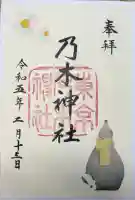 奉拝
乃木神社
令和五年二月十三日